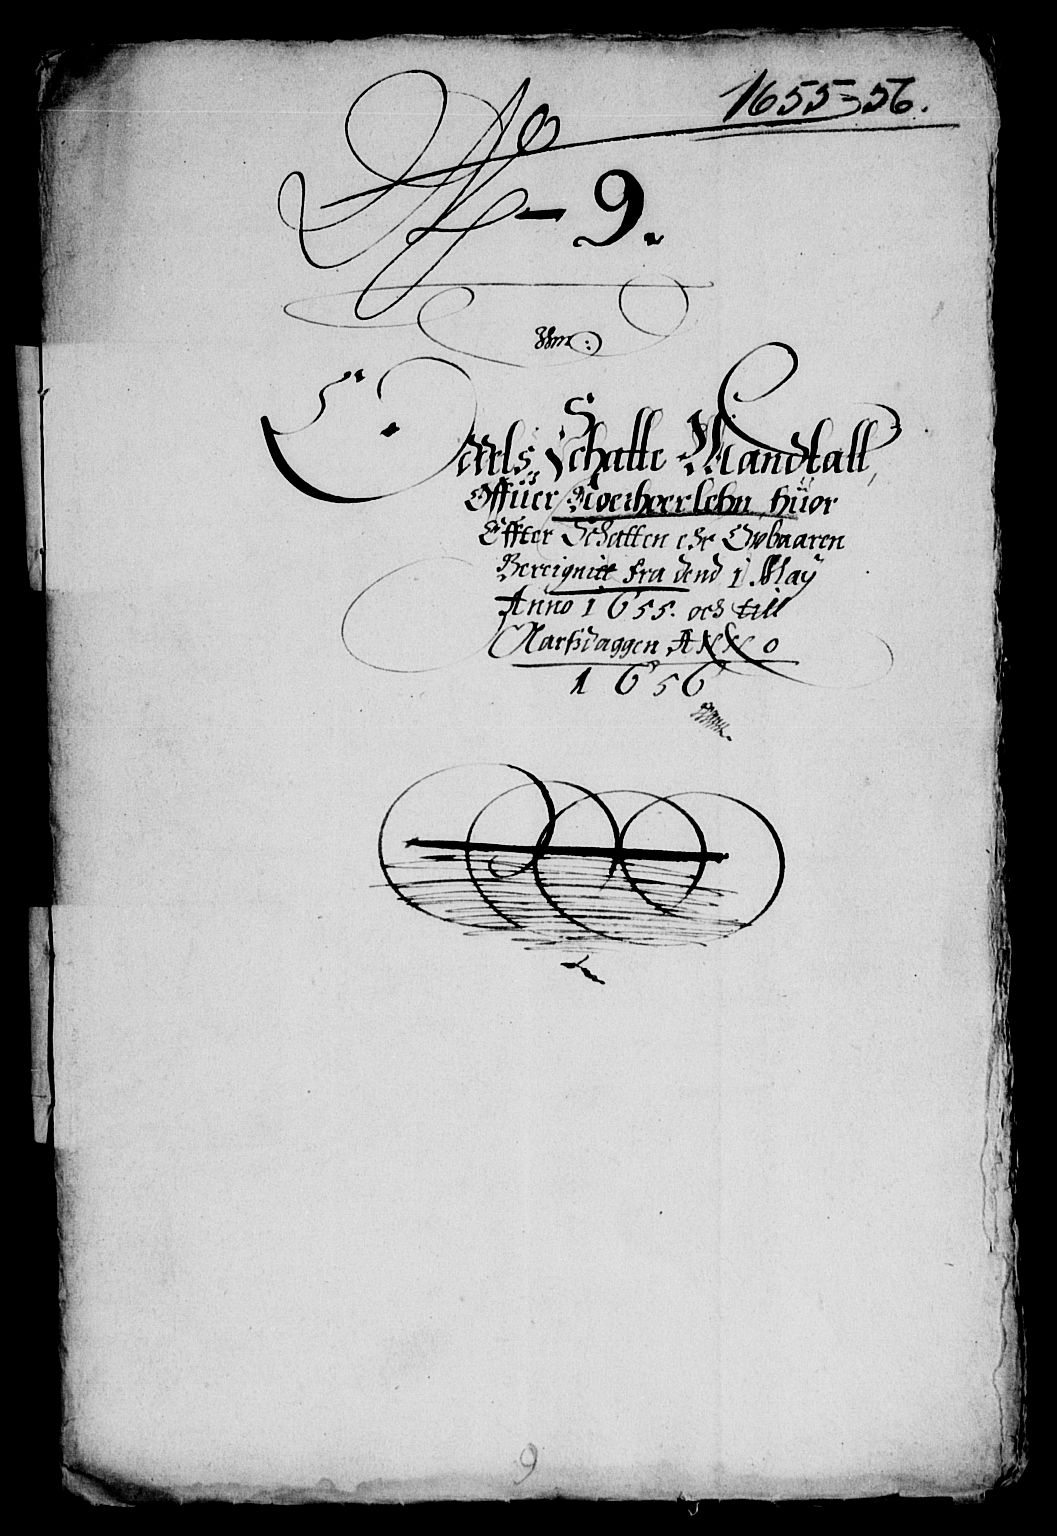 1655-56.
No - 9.
Odels Schatte Mandtall,
Offuer Nordherlehn huor
Effter Schatten ehr Opbaaren
Bereignitt fra dend 1 May
Anno 1655. och till
Aarsdaggen Anno
1656
9